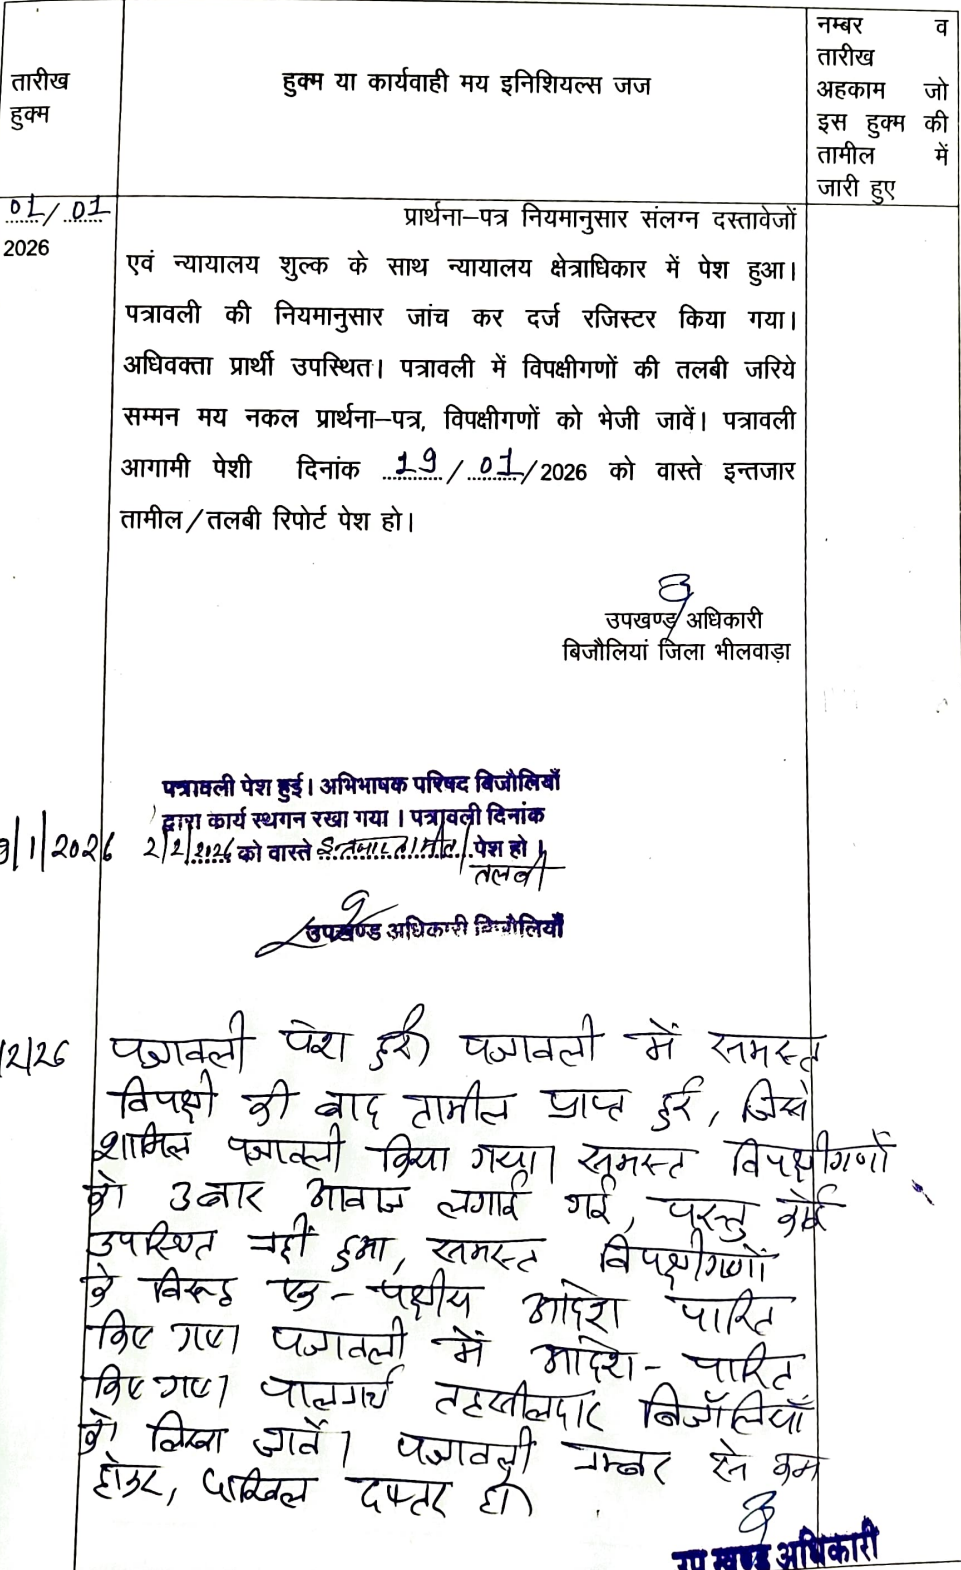 तारीख
हुक्म
हुक्म या कार्यवाही मय इनिशियल्स जज
नम्बर व
तारीख
अहकाम जो
इस हुक्म की
तामील में
जारी हुए
01/01
2026
प्रार्थना–पत्र नियमानुसार संलग्न दस्तावेजों
एवं न्यायालय शुल्क के साथ न्यायालय क्षेत्राधिकार में पेश हुआ।
पत्रावली की नियमानुसार जांच कर दर्ज रजिस्टर किया गया।
अधिवक्ता प्रार्थी उपस्थित। पत्रावली में विपक्षीगणों की तलबी जरिये
सम्मन मय नकल प्रार्थना–पत्र, विपक्षीगणों को भेजी जावें। पत्रावली
आगामी पेशी दिनांक 19/01/2026 को वास्ते इन्तजार
तामील/तलबी रिपोर्ट पेश हो।
उपखण्ड अधिकारी
बिजौलियां जिला भीलवाड़ा
पत्रावली पेश हुई। अभिभाषक परिषद बिजौलियाँ
द्वारा कार्य स्थगन रखा गया। पत्रावली दिनांक
9/1/2026 2/2/2026 को वास्ते इन्तजार तामील/ पेश हो।
तलबी
उपखण्ड अधिकारी बिजौलियाँ
/2/26 पत्रावली पेश हुई। पत्रावली में समस्त
विपक्षी की बाद तामील प्राप्त हुई, जिसे
शामिल पत्रावली किया गया। समस्त विपक्षीगणों
को 3 बार आवाज लगाई गई, परन्तु कोई
उपस्थित नहीं हुआ, समस्त विपक्षीगणों
के विरूद्ध एक-पक्षीय आदेश पारित
किए गए। पत्रावली में आदेश-पारित
किए गए। पालनार्थ तहसीलदार बिजौलियाँ
को लिखा जावें। पत्रावली नम्बर से कम
होकर, दाखिल दफ्तर हो।
उप खण्ड अधिकारी